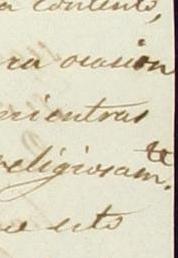 a contento,
ra ocasion
mientras
religiosam.te
ue esto